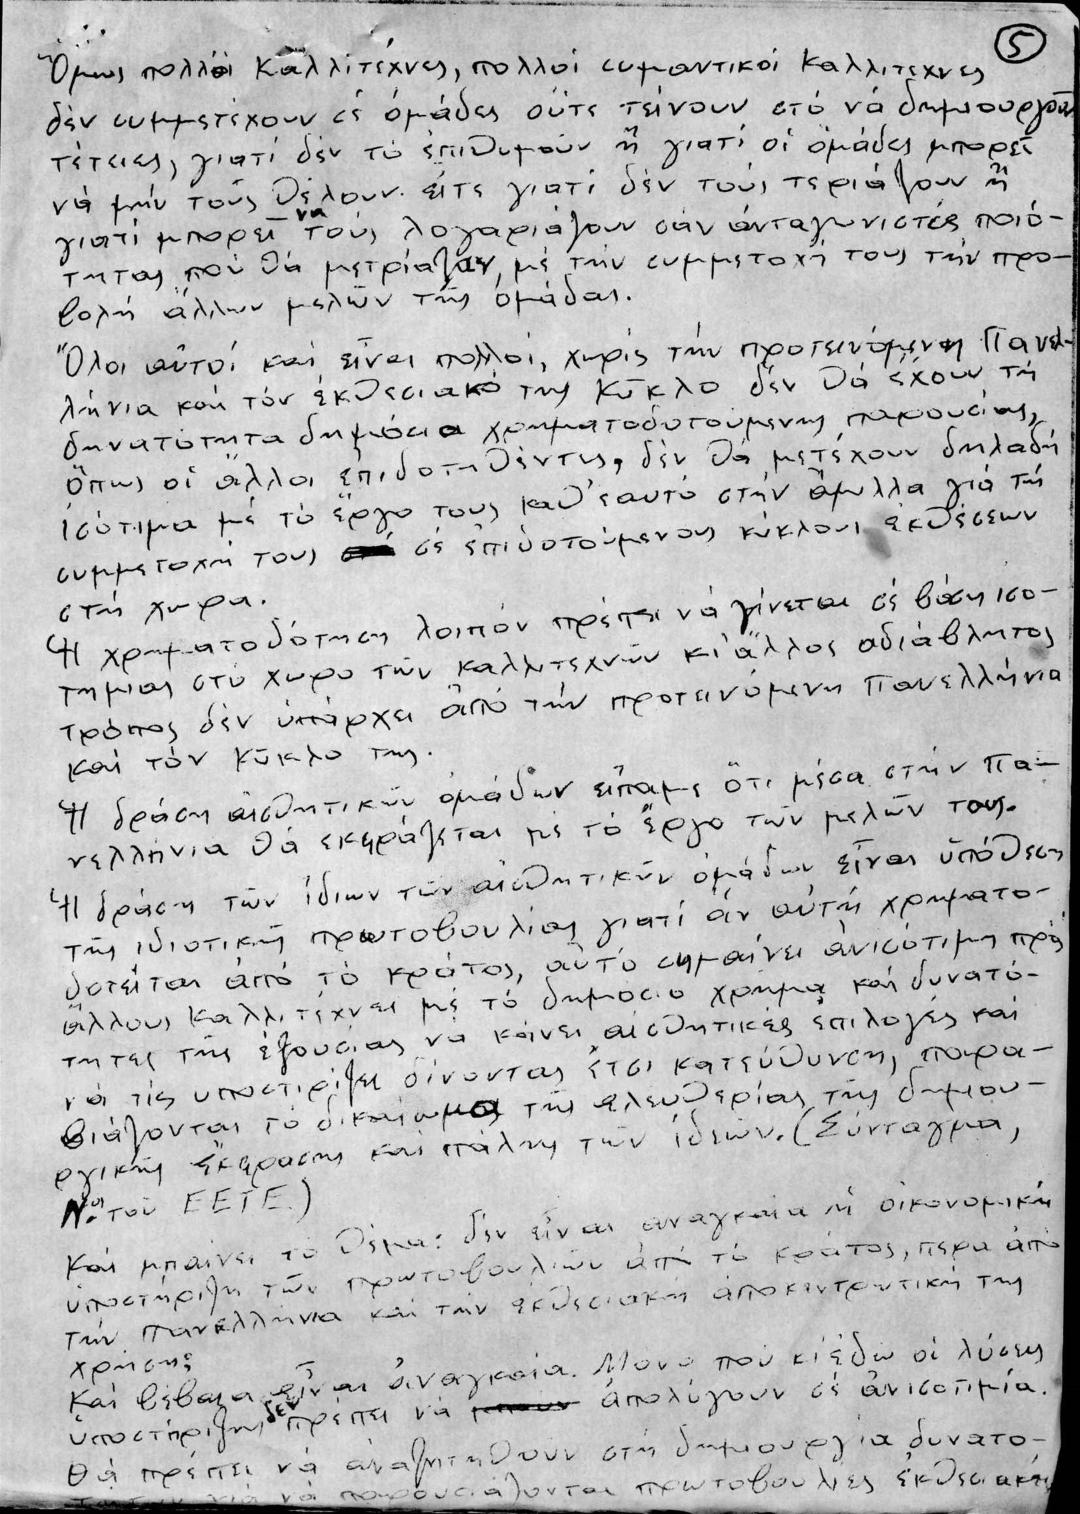 5
Ὅμως πολλοί Καλλιτέχνες, πολλοί σημαντικοί Καλλιτέχνες
δέν συμμετέχουν σέ ὁμάδες οὔτε τείνουν στό νά δημιουργοῦν
τέτειες, γιατί δέν τό ἐπιθυμοῦν ἤ γιατί οἱ ὁμάδες μπορεῖ
νά μήν τούς θέλουν. εἴτε γιατί δέν τούς τεριάζουν ἤ
γιατί μπορεῖ νά τούς λογαριάζουν σάν ἀνταγωνιστές ποιό-
τητας πού θά μετρίαζαν, μέ τήν συμμετοχή τους τήν προ-
βολή ἄλλων μελῶν τῆς ὁμάδας.
Ὅλοι αὐτοί καί εἶναι πολλοί, χωρίς τήν προτεινόμενη Πανελ-
λήνια καί τόν ἐκθεσιακό της Κύκλο δέν θά ἔχουν τή
δυνατότητα δημόσια χρηματοδοτούμενης παρουσίας,
ὅπως οἱ ἄλλοι ἐπιδοτηθέντες, δέν θά μετέχουν δηλαδή
ἰσότιμα μέ τό ἔργο τους καθ'εαυτό στήν ἅμιλλα γιά τή
συμμετοχή τους σέ ἐπιδοτούμενους κύκλους ἐκθέσεων
στή χώρα.
Ἡ χρηματοδότηση λοιπόν πρέπει νά γίνεται σέ βάση ισο-
τημιας στό χωρο τῶν καλλιτεχνῶν κι ἄλλος αδιάβλητος
τρόπος δέν ὑπάρχει ἀπό τήν προτεινόμενη Πανελλήνια
καί τόν Κύκλο της.
Ἡ δράση αἰσθητικῶν ὁμάδων εἴπαμε ὅτι μέσα στήν Πα-
νελλήνια θά εκφράζεται μέ τό ἔργο τῶν μελῶν τους.
Ἡ δράση τῶν ἰδιων τῶν αἰσθητικῶν ὁμάδων εἶναι ὑπόθεση
τῆς ιδιοτικῆς πρωτοβουλίας γιατί ἄν αὐτή χρηματο-
δοτεῖται ἀπό τό κράτος, αὐτό σημαίνει ἀνισότιμη πρός
ἄλλους Καλλιτέχνες μέ τό δημόσιο χρῆμα καί δυνατό-
τητες τῆς ἐξουσίας νά κάνει αἰσθητικές επιλογές καί
νά τίς υποστιρίζει δίνοντας ἔτσι κατεύθυνση, παρα-
βιάζοντας τό δικαίωμα τῆς ελευθερίας τῆς δημιου-
ργικῆς ἔκφρασης καί πάλης τῶν ἰδεῶν. (Σύνταγμα,
Νος τοῦ ΕΕΤΕ.)
Καί μπαίνει τό θέμα: δέν εἶναι αναγκαία ἡ οἰκονομική
ὑποστήριξη τῶν πρωτοβουλιῶν ἀπό τό κράτος, πέρα ἀπό
τήν Πανελλήνια καί τήν ἐκθεσιακή ἀποκεντρωτική της
χρήση;
Καί βέβαια εἶναι ἀναγκαία. Μόνο πού κι ἐδώ οἱ λύσεις
ὑποστήριξης δέν πρέπει νά ἀπολύγουν σέ ἀνισοτιμία.
Θά πρέπει νά ἀναζητηθοῦν στή δημιουργία δυνατο-
νά παρουσιάζονται πρωτοβουλίες ἐκθεσιακές